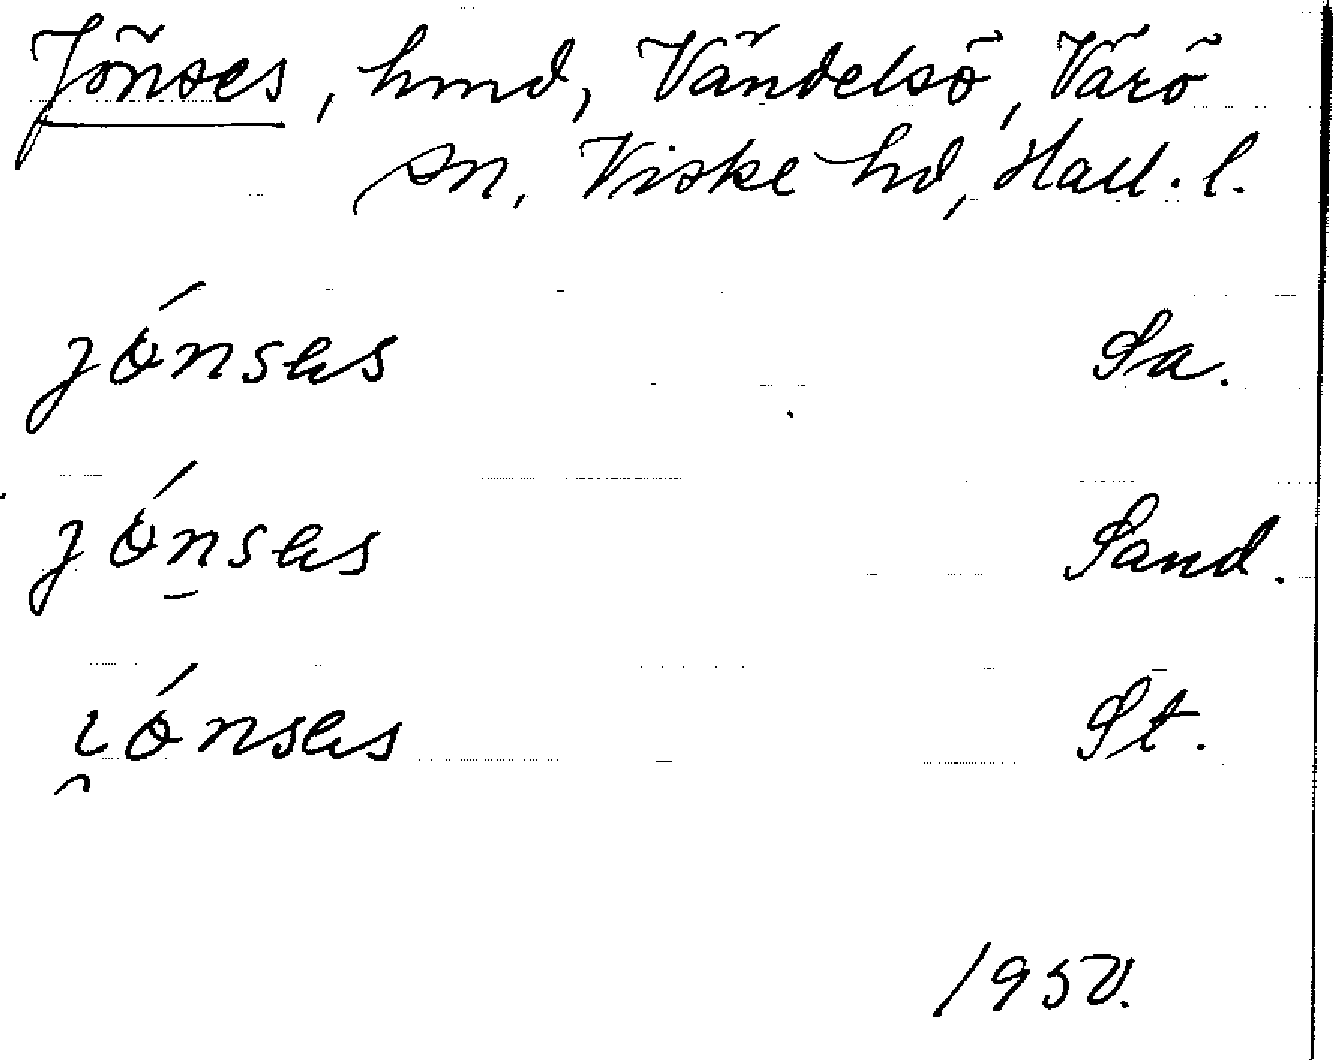 Jönses, hmd, Vändelsö, Värö
sn, Viske hd, Hall. l.
jónsəs Sa.
jón̠səs Sand.
i̯ónsəs St.
1950.